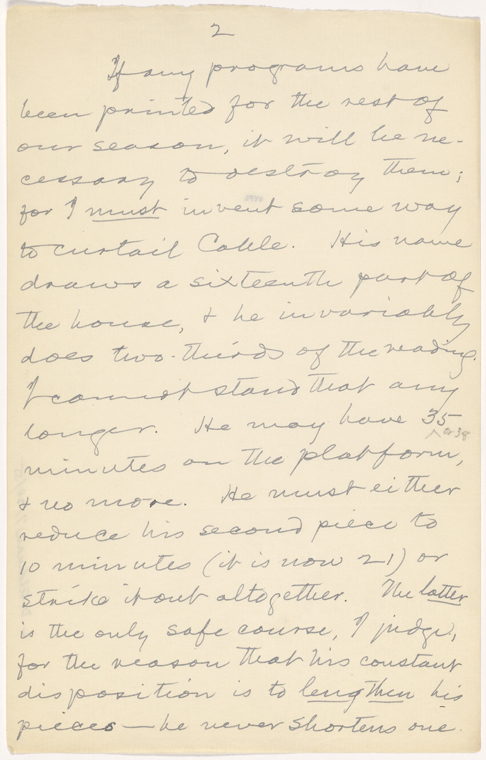 2
If any programs have
been printed for the rest of
our season, it will be ne-
cessary to destroy them;
for I must invent some way
to curtail Cable. His name
draws a sixteenth part of
the house, & he invariably
does two-thirds of the reading.
I cannot stand that any
longer. He may have 35
^ or 38
minutes on the platform,
& no more. He must either
reduce his second piece to
10 minutes (it is now 21) or
strike it out altogether. The latter
is the only safe course, I judge,
for the reason that his constant
disposition is to lengthen his
pieces — he never shortens one.